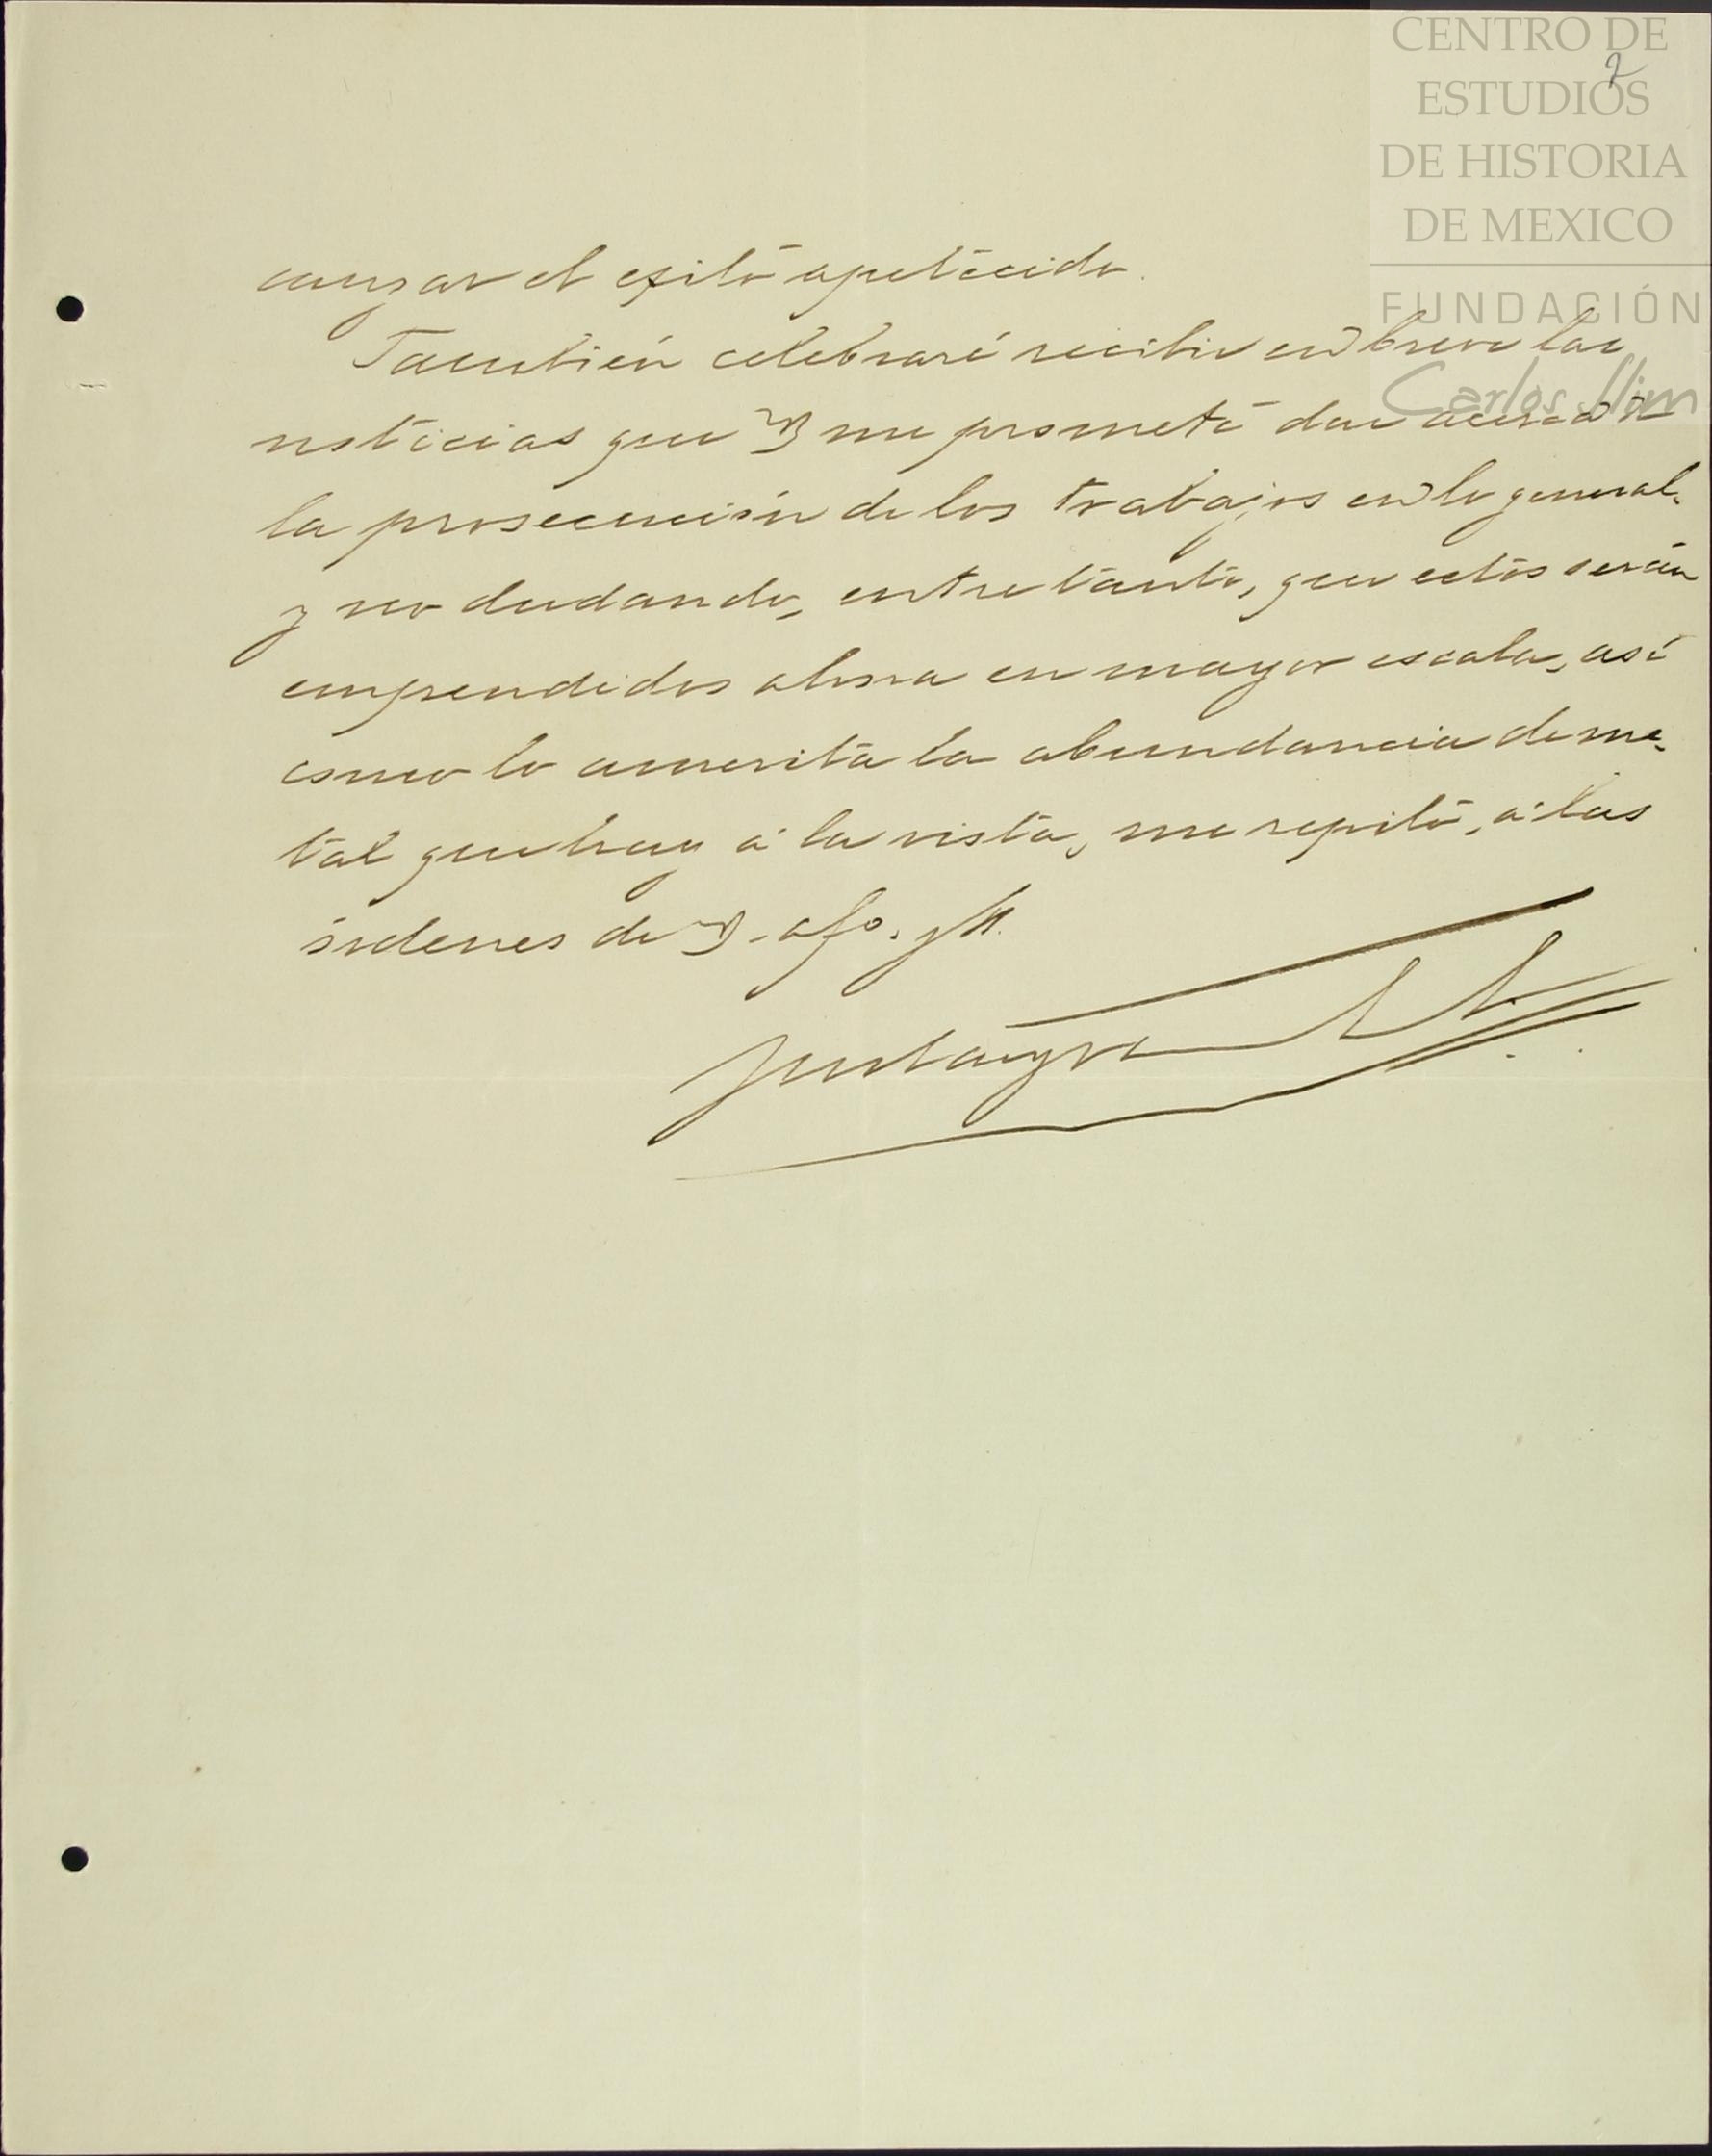 CENTRO DE
ESTUDIOS
DE HISTORIA
DE MEXICO
FUNDACIÓN
Carlos Slim
2
canzar el exito apetecido.
También celebraré recibir en breve las
noticias que V me promete dar acerca de
la prosecución de los trabajos en lo general,
y no dudando, entre tanto, que estos serán
emprendidos ahora en mayor escala, así
como lo amerita la abundancia de me-
tal que hay á la vista, me repito, á las
órdenes de V. afo. y